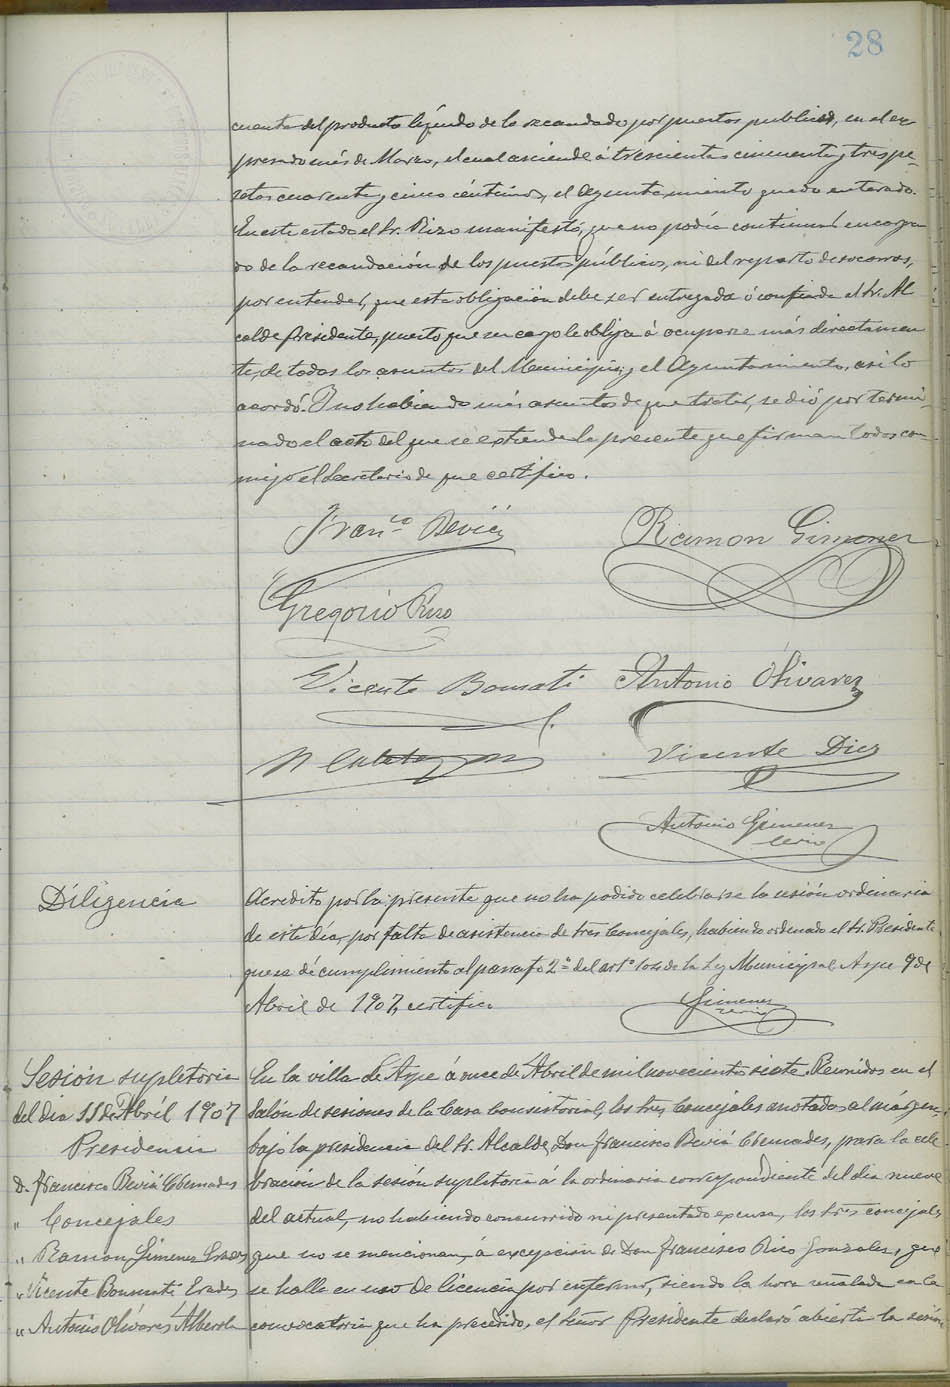 28
cuenta del producto líquido de lo recaudado por puestos publicos, en el ex
presado mes de Marzo, el cual asciende á trescientas cincuenta y tres pe-
setas cuarenta y cinco céntimos, el Ayuntamiento quedo enterado.
En este estado el Sr. Rizo manifestó, que no podia continuar encarga
do de la recaudación de los puestos públicos, ni del reparto de socorros,
por entender, que esta obligación debe ser entregada ó confiada al Sr. Al
calde Presidente, puesto que su cargo le obliga á ocuparse más directamen
te, de todos los asuntos del Municipio; y el Ayuntamiento, asi lo
acordó. Y no habiendo más asuntos de que tratar, se dió por termi-
nado el acto del que se extiende la presente que firman todos con-
migo el Secretario de que certifico.
Franco Beviá
Ramon Gimenez
Gregorio Rizo
Vicente Bonmati
Antonio Olivares
Vicente Diez
Antonio Gimenez
Serio
Diligencia
Acredito por la presente que no ha podido celebrarse la sesión ordinaria
de este dia, por falta de asistencia de tres Concejales, habiendo ordenado el Sr. Presidente
que se dé cumplimiento al parrafo 2º del artº 104 de la Ley Municipal. Aspe 9 de
Abril de 1907, certifico
Gimenez
Sesión supletoria
del dia 11 de Abril 1907
Presidencia
D. Francisco Beviá Cremades
" Concejales
" Ramon Gimenez
" Vicente Bonmati Erades
" Antonio Olivares Alberola
En la villa de Aspe á once de Abril de mil novecientos siete. Reunidos en el
Salón de sesiones de la Casa Consistorial, los tres Concejales anotados al márgen,
bajo la presidencia del Sr. Alcalde, Don Francisco Beviá Cremades, para la cele
bración de la sesión supletoria á la ordinaria correspondiente del dia nueve
del actual, no habiendo concurrido ni presentado excusa, los tres concejales
que no se mencionan, á excepción de Don Francisco Rico Gonzalez, que
se halla en uso de licencia por enfermo, siendo la hora señalada en la
convocatoria que ha precedido, el Señor Presidente declaró abierta la sesión